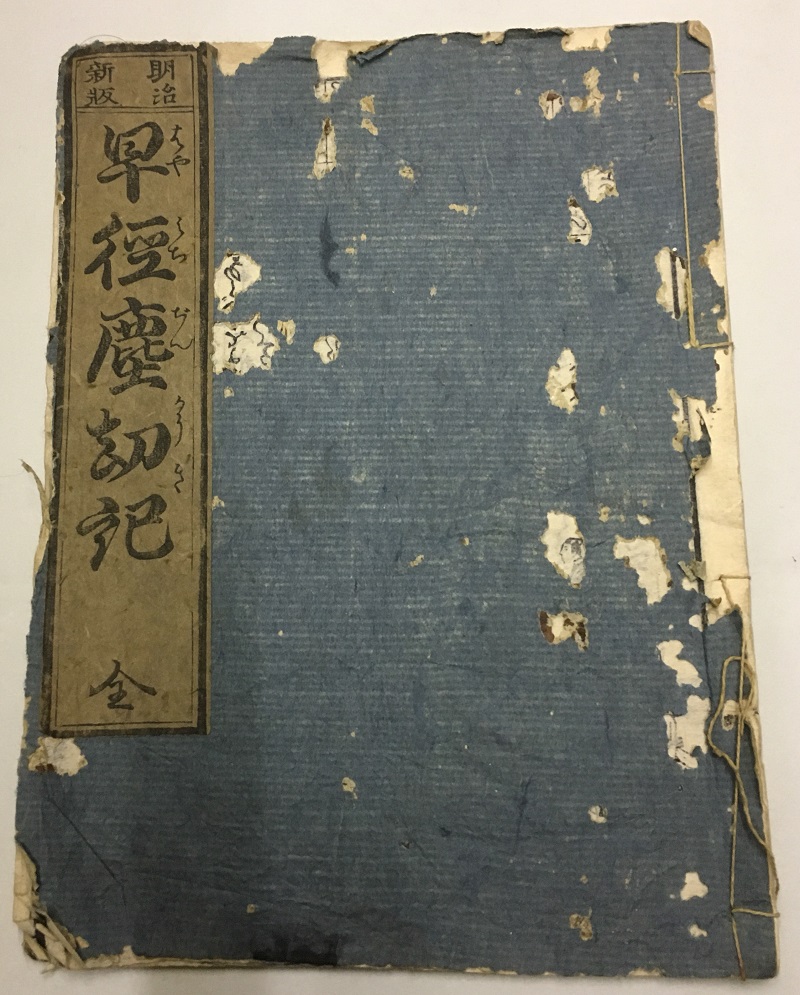 明治
新版
はや みち ぢん かう き
早徑塵劫記
全